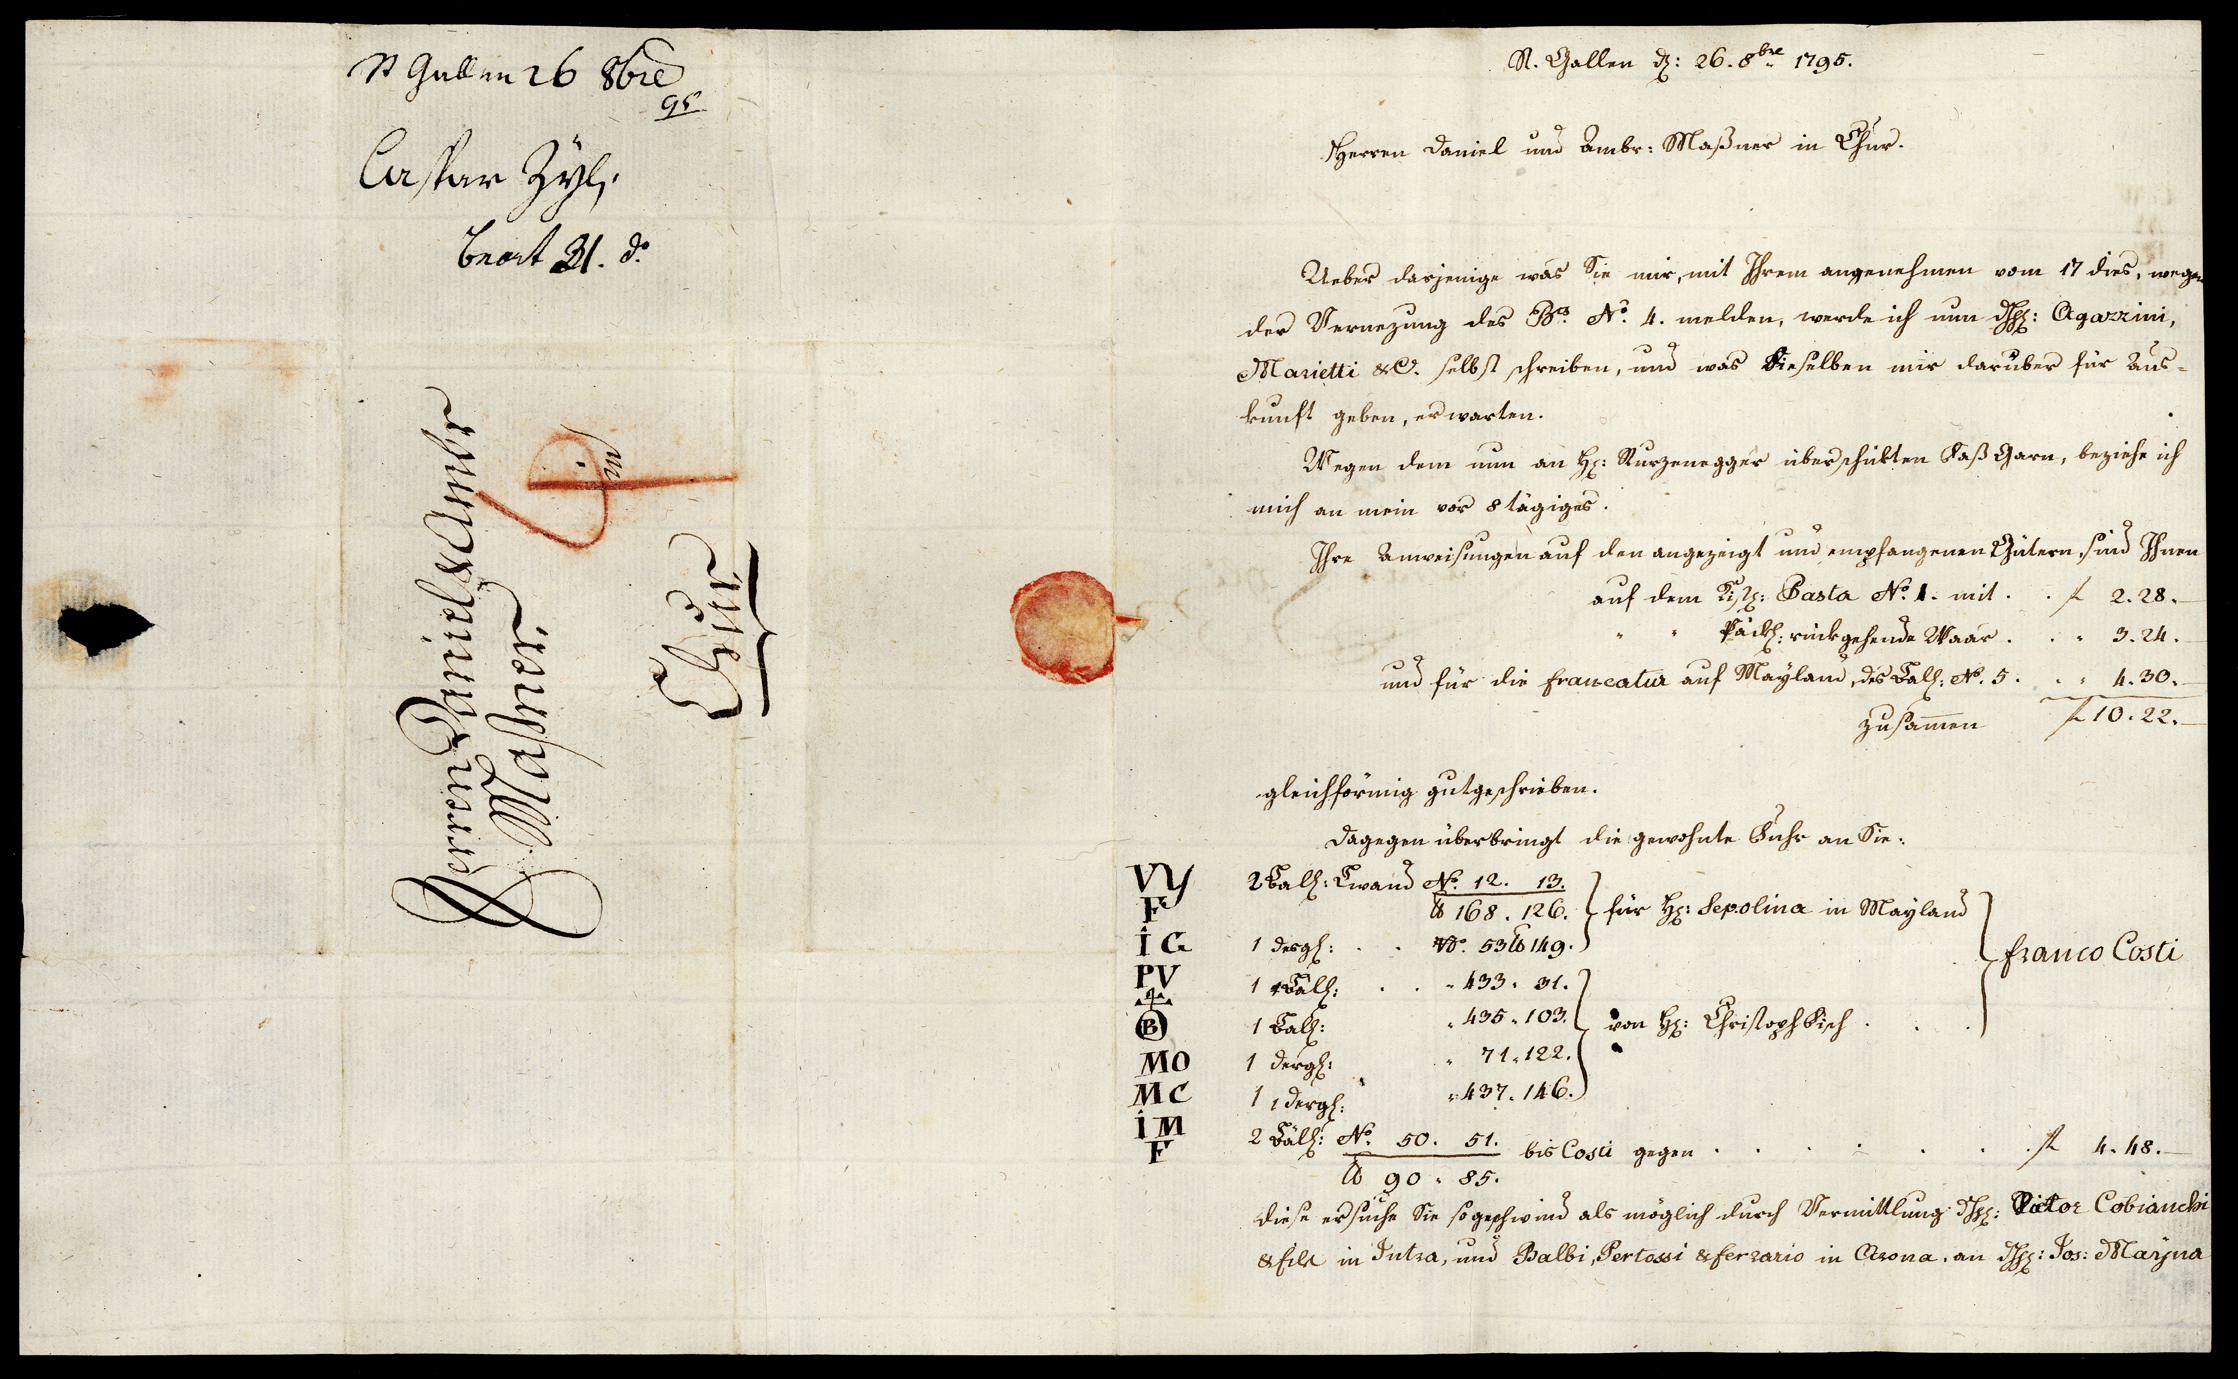 St Gallen 26 8bre
95
Caspar Zyli
beant 31. do
Herren Daniel & Ambr
Massner
Chur
St. Gallen d: 26. 8bre 1795.
Herren Daniel und Ambr: Maßner in Chur.
Ueber dasjenige was Sie mir, mit Ihrem angenehmen vom 17 dies, wegen
der Vernezung des Bs. No. 4. melden, werde ich nun dHH: Agazzini,
Marietti & C. selbst schreiben, und was dieselben mir darüber für Aus=
kunft geben, erwarten.
Wegen dem nun an H: Kurzenegger überschikten Faß Garn, beziehe ich
mich an mein vor 8 tägiges.
Ihre Anweisungen auf den angezeigt und empfangenen Gütern, sind Ihnen
auf dem Kistl: Pasta No. 1. mit . . f 2. 28.
" " Päckl: rückgehende Waar . . " 3. 24.
und für die francatur auf Mayland, des Ball: No. 5 . . " 4. 30.
zusammen f 10. 22.
gleichförmig gutgeschrieben.
Dagegen überbringt die gewohnte Fuhr an Sie:
VY 2 Ball: Lwand No. 12. 13.
F ℔ 168. 126. für H: Sepolina in Mayland
IG 1 dergl: . . No. 53 ℔ 149.
franco Costi
PV 1 Ball: . . " 433. 31.
B 1 Ball: " 435. 103. von H: Christoph Fisch . . .
MO 1 dergl: " 71. 122.
MC 1 dergl: " 437. 146.
IM 2 Bäll: No. 50. 51. bis Costi gegen . . . . . . f 4. 48.
F ℔ 90. 85.
diese ersuche Sie so geschwind als möglich durch Vermittlung dHH: Victor Cobianchi
& fils in Intra, und Balbi, Pertossi & ferrario in Arona, an dHH: Jos: Mayna